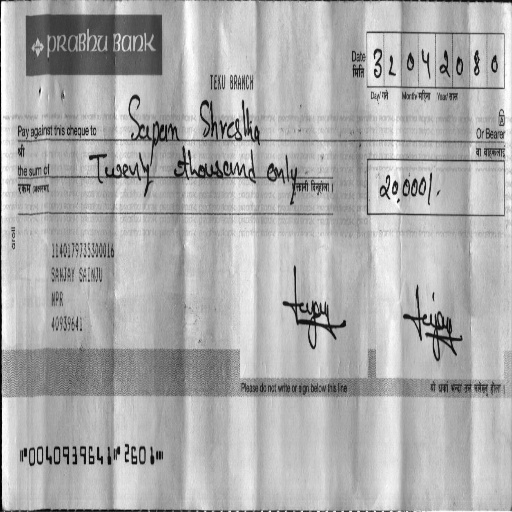 PRABHU BANK
TEKU BRANCH
Date
मिति
32042080
Day/ गते Month/ महिना Year/ साल
Pay against this cheque to Sapan Shrestha Or Bearer
श्री वा वाहकलाई
the sum of Twenty thousand only
रकम 20,000/.
1140179735300016
SANJAY SAINJU
NPR
40939641
Please do not write or sign below this line
⑈0040939641⑈2601⑈